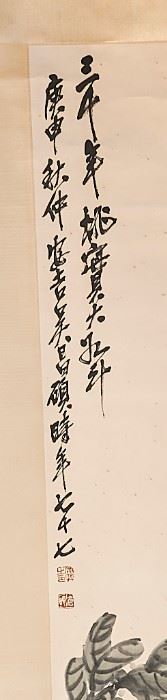 三千年桃實大如斗
庚申秋仲安吉吳昌碩時年七十七